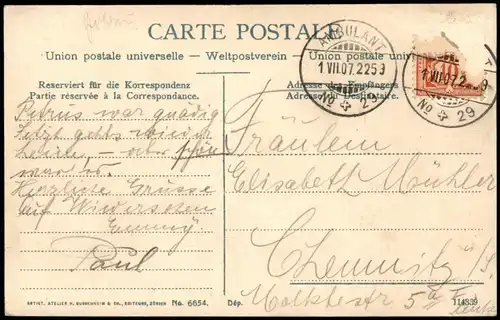 CARTE POSTALE
Union postale universelle. – Weltpostverein – Union postale
Reserviert für die Korrespondenz
Partie réservée à la Correspondance.
Adresse des Empfängers
Adresse du Destinataire.
AMBULANT
1.VII.07.22 59
No 29
1.VII.07.2 9
No 29
Petrus war gnädig
Jetzt gehts wieder
heim, aber schön
war es.
Herzliche Grüsse
auf Wiedersehen
Emmy
Paul
Fräulein
Elisabeth Mühler
Chemnitz i/S
Moltkestr 5
ARTIST. ATELIER H. GUGGENHEIM & CO., EDITEURS, ZÜRICH No. 6654. Dép. 114839